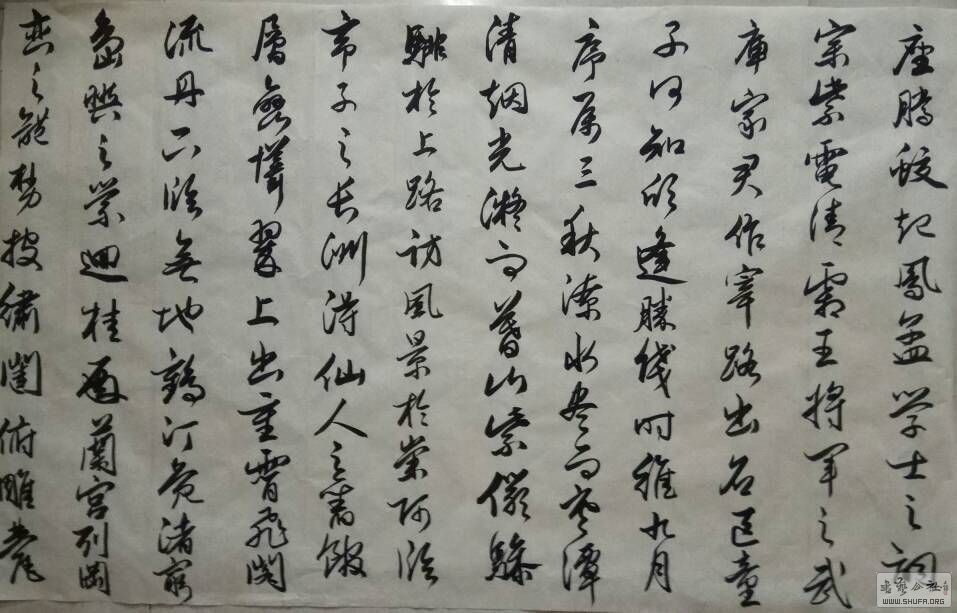 座腾蛟起鳳孟学士之词
宗紫電清霜王将军之武
庫家君作宰路出名区童
子何知躬逢勝餞时維九月
序属三秋潦水尽而寒潭
清烟光凝而暮山紫儼驂
騑於上路访風景於崇阿临
帝子之长洲得仙人之舊館
層巒聳翠上出重霄飛閣
流丹下临無地鶴汀凫渚窮
島與之縈迴桂殿蘭宫列岡
峦之體势披繡闥俯雕甍
书艺公社
WWW.SHUFA.ORG